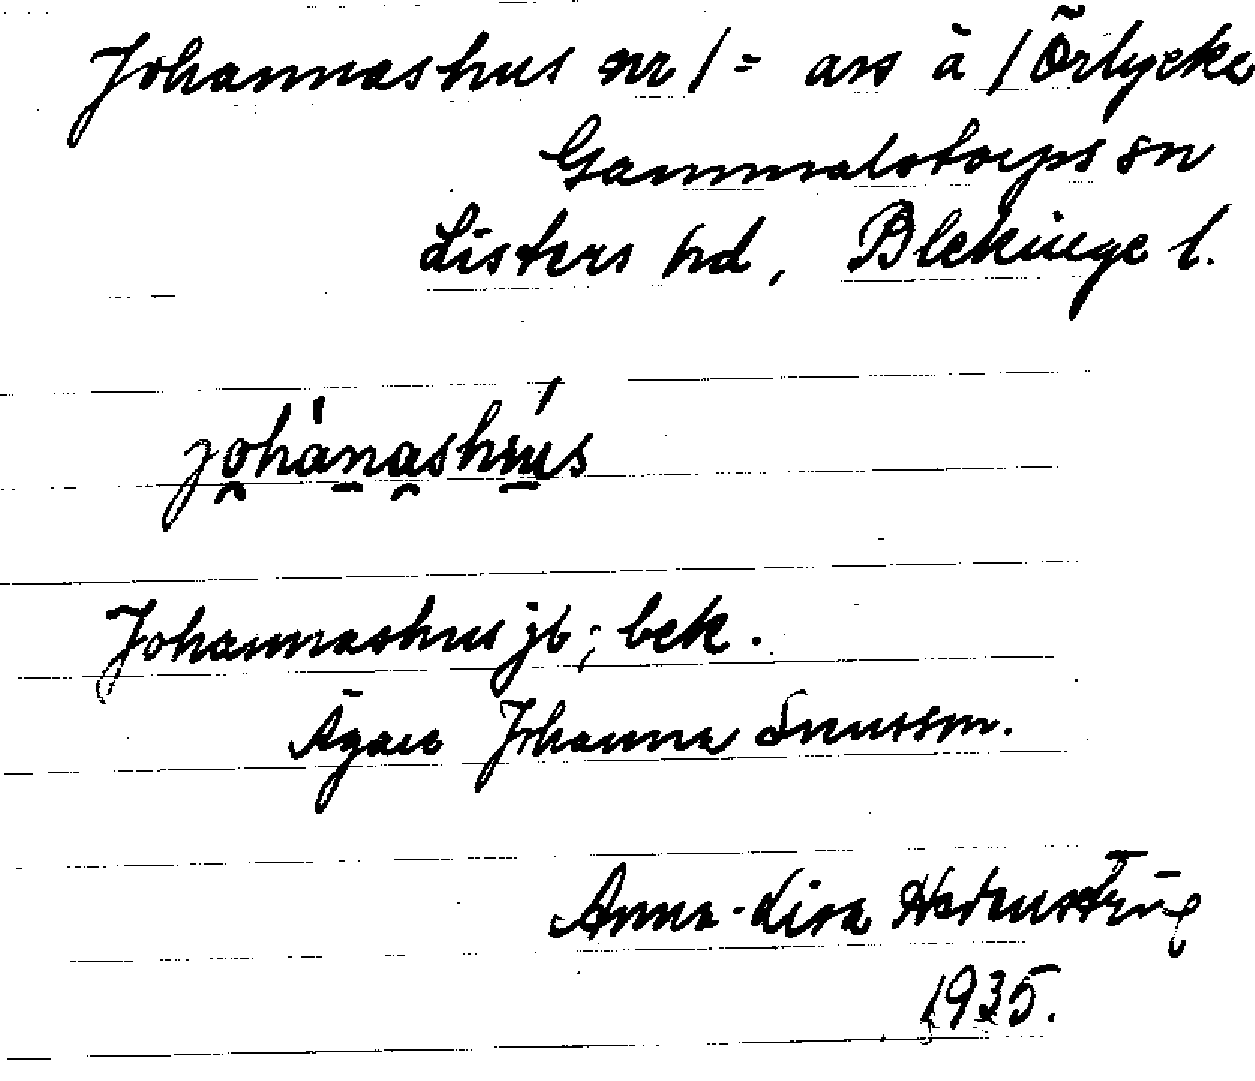 Johannashus nr 1 = avs å 1 Örlycke
Gammalstorps sn
Listers hd, Blekinge l.
johanashus
Johannashus jb; bek.
Ägare Johanna Svensson.
Anna-Lisa
1935.